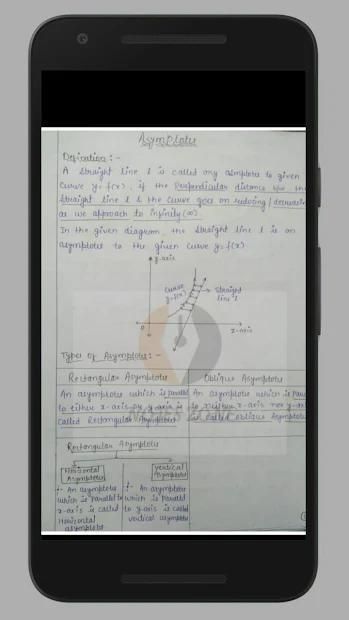 Asymptotes
Defination : -
A straight line l is called any asmptote to given
curve y=f(x), if the Perpendicular distance b/w the
straight line l & the curve goes on reducing / decreasing
as we approach to infinity (∞).
In the given diagram, the straight line l is an
asymptotes to the given curve y=f(x)
y-axis
Curve
y=f(x)
Straight
line l
0
x-axis
Types of Asymptote : -
Rectangular Asymptote
An asymptote which is parallel
to either x-axis or y-axis is
called Rectangular Asymptote
Oblique Asymptote
An asymptote which is
to neither x-axis nor y-axis
is called oblique Asymptote
Rectangular Asymptote
Horizontal
Asymptote
:- An asymptote
which is Parallel to
x-axis is called
Horizontal
asymptote
Vertical
Asymptote
:- An asymptote
which is parallel
to y-axis is called
vertical asymptote